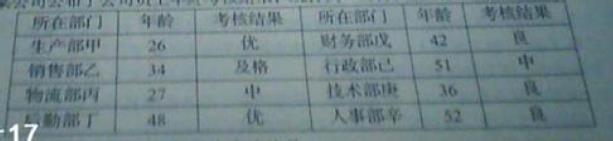 所在部门 年龄 考核结果 所在部门 年龄 考核结果
生产部甲 26 优 财务部戊 42 良
销售部乙 34 及格 行政部己 51 中
物流部丙 27 中 技术部庚 36 良
后勤部丁 48 优 人事部辛 52 良
-17